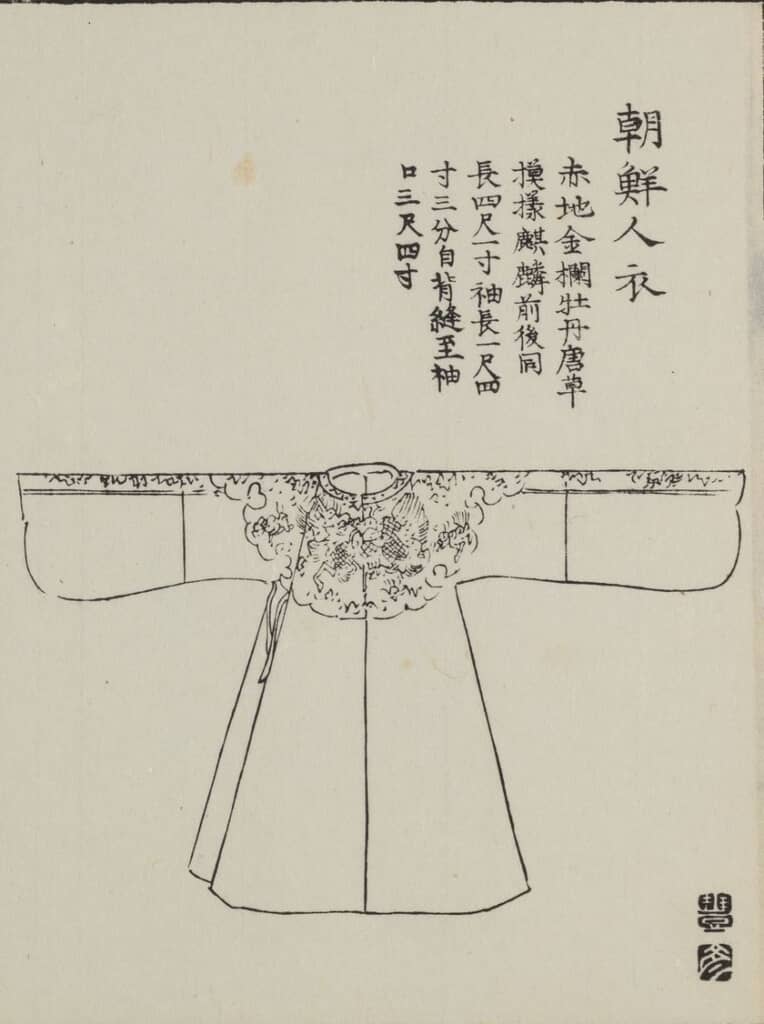 朝鮮人衣
赤地金襴牡丹唐草
摸様麒麟前後同
長四尺一寸袖長一尺四
寸三分自背縫至袖
口三尺四寸
豐彦